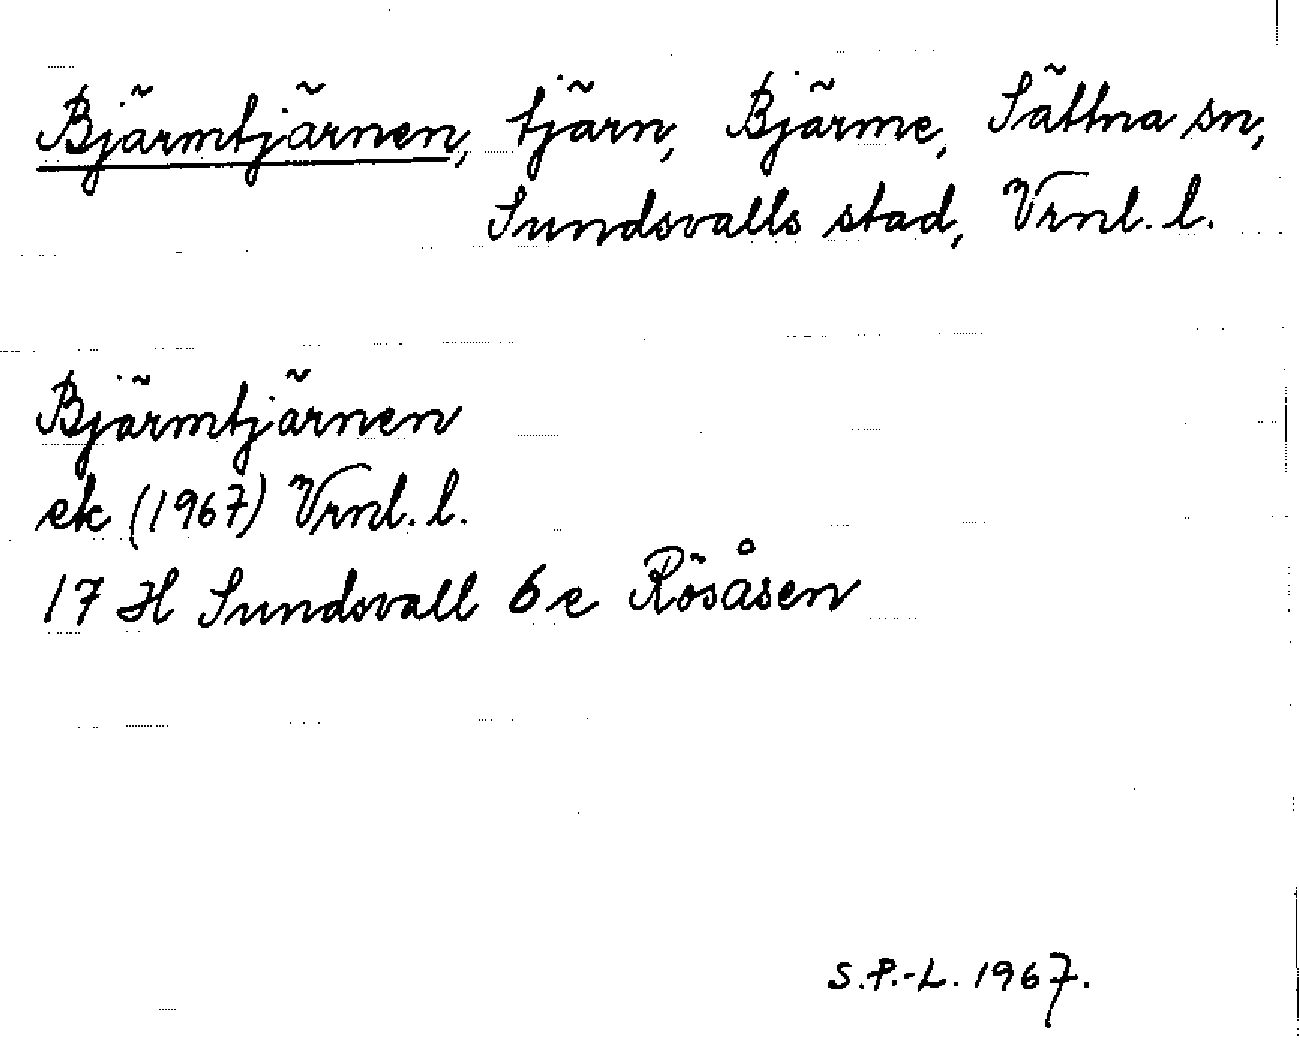 Bjärmtjärnen, tjärn, Bjärme, Sättna sn,
Sundsvalls stad, Vrnl. l.
Bjärmtjärnen
ek (1967) Vrnl. l.
17 H Sundsvall 6 e Rösåsen
S.P.-L. 1967.